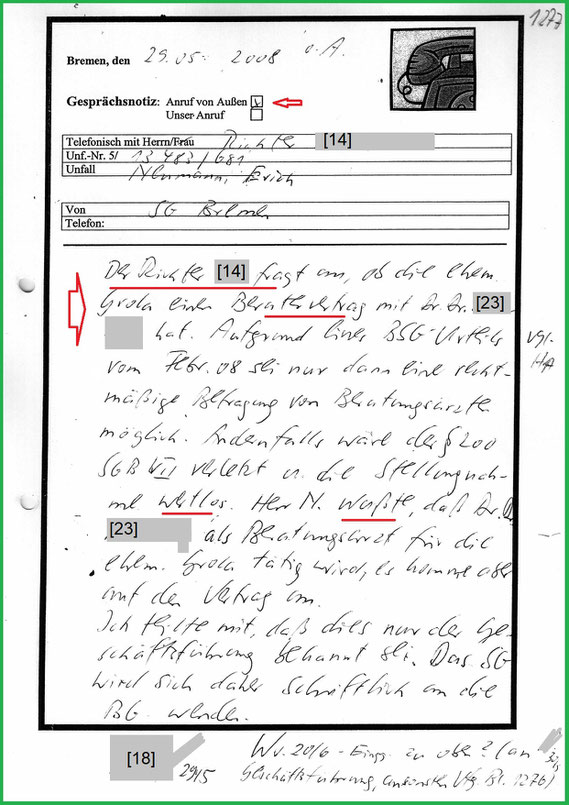 1277
Bremen, den 29.05. 2008 o.A.
Gesprächsnotiz: Anruf von Außen
Unser Anruf
Telefonisch mit Herrn/Frau Richter [14]
Unf.-Nr. 5/ 13 483/081
Unfall Neumann, Erich
Von SG Bremen
Telefon:
Der Richter [14] fragt an, ob die ehem.
Großa einen Beratervertrag mit Dr. Dr. [23]
hat. Aufgrund eines BSG-Urteils vgl.
vom Febr. 08 sei nur dann eine recht- HA
mäßige Befragung von Beratungsärzten
möglich. Andernfalls wäre der § 200
SGB VII verletzt u. die Stellungnah-
me wertlos. Herr N. wußte, daß Dr. Dr.
[23] als Beratungsarzt für die
ehem. Großa tätig wird, es komme aber
auf den Vertrag an.
Ich teilte mit, daß dies nur der Ge-
schäftsführung bekannt sei. Das SG
wird sich daher schriftlich an die
BG wenden.
[18] 29/5
Wv. 20/6 - Eing. zu oben? (an
Geschäftsführung, ansonsten Vfg. Bl. 1276)